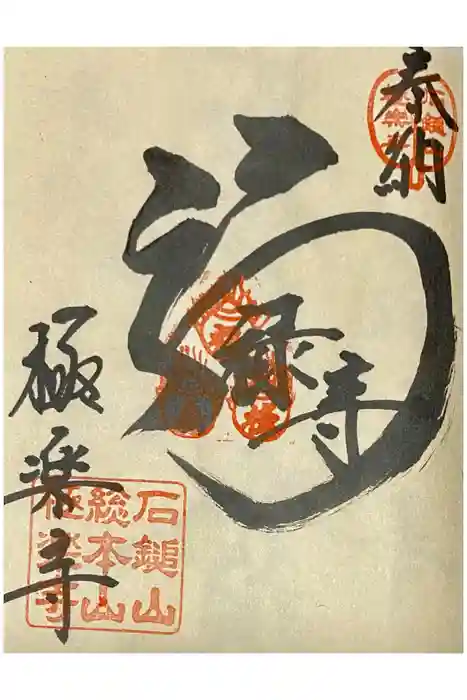 奉納
福禄寿
極楽寺
石鎚山
総本山
極楽寺